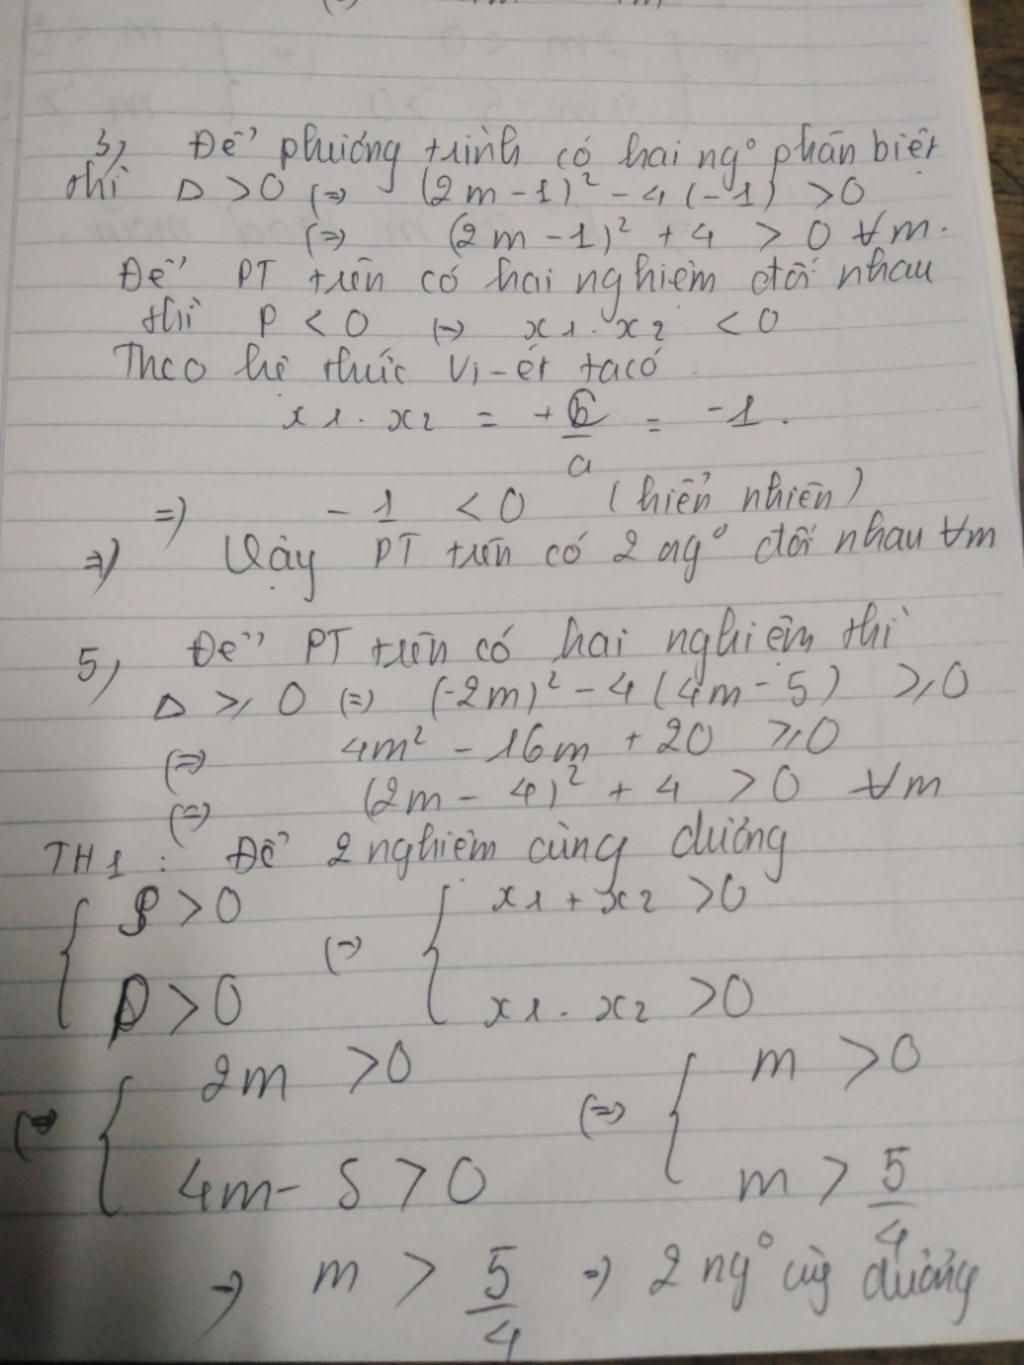 3, Để phương trình có hai ng° phân biệt
thì Δ > 0 (=) (2m - 1)² - 4(-1) > 0
(=) (2m - 1)² + 4 > 0 ∀m.
Để PT trên có hai nghiệm đối nhau
thì P < 0 (=) x1. x2 < 0
Theo hệ thức Vi-ét ta có
x1. x2 = + c/a = -1.
=) - 1 < 0 (hiển nhiên)
=) Vậy PT trên có 2 ng° đối nhau ∀m
5, Để PT trên có hai nghiệm thì
Δ ≥ 0 (=) (-2m)² - 4(4m - 5) ≥ 0
(=) 4m² - 16m + 20 ≥ 0
(=) (2m - 4)² + 4 > 0 ∀m
TH1 : Để 2 nghiệm cùng dương
{ S > 0 (=) { x1 + x2 > 0
P > 0 x1. x2 > 0
(=) { 2m > 0 (=) { m > 0
4m - 5 > 0 m > 5/4
=) m > 5/4 =) 2 ng° cùg dương